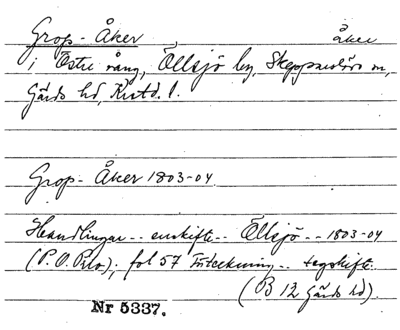 Grop-Åker åker
i Östre vång, Ellsjö by, Skepparslövs sn,
Gärds hd, Krstd. l.
Grop-Åker 1803-04
Handlingar -- enskifte -- Ellsjö -- 1803-04
(P. O. ); fol 57 Uträckning -- tegskifte.
(B 12 Gärds hd).
Nr 5337.